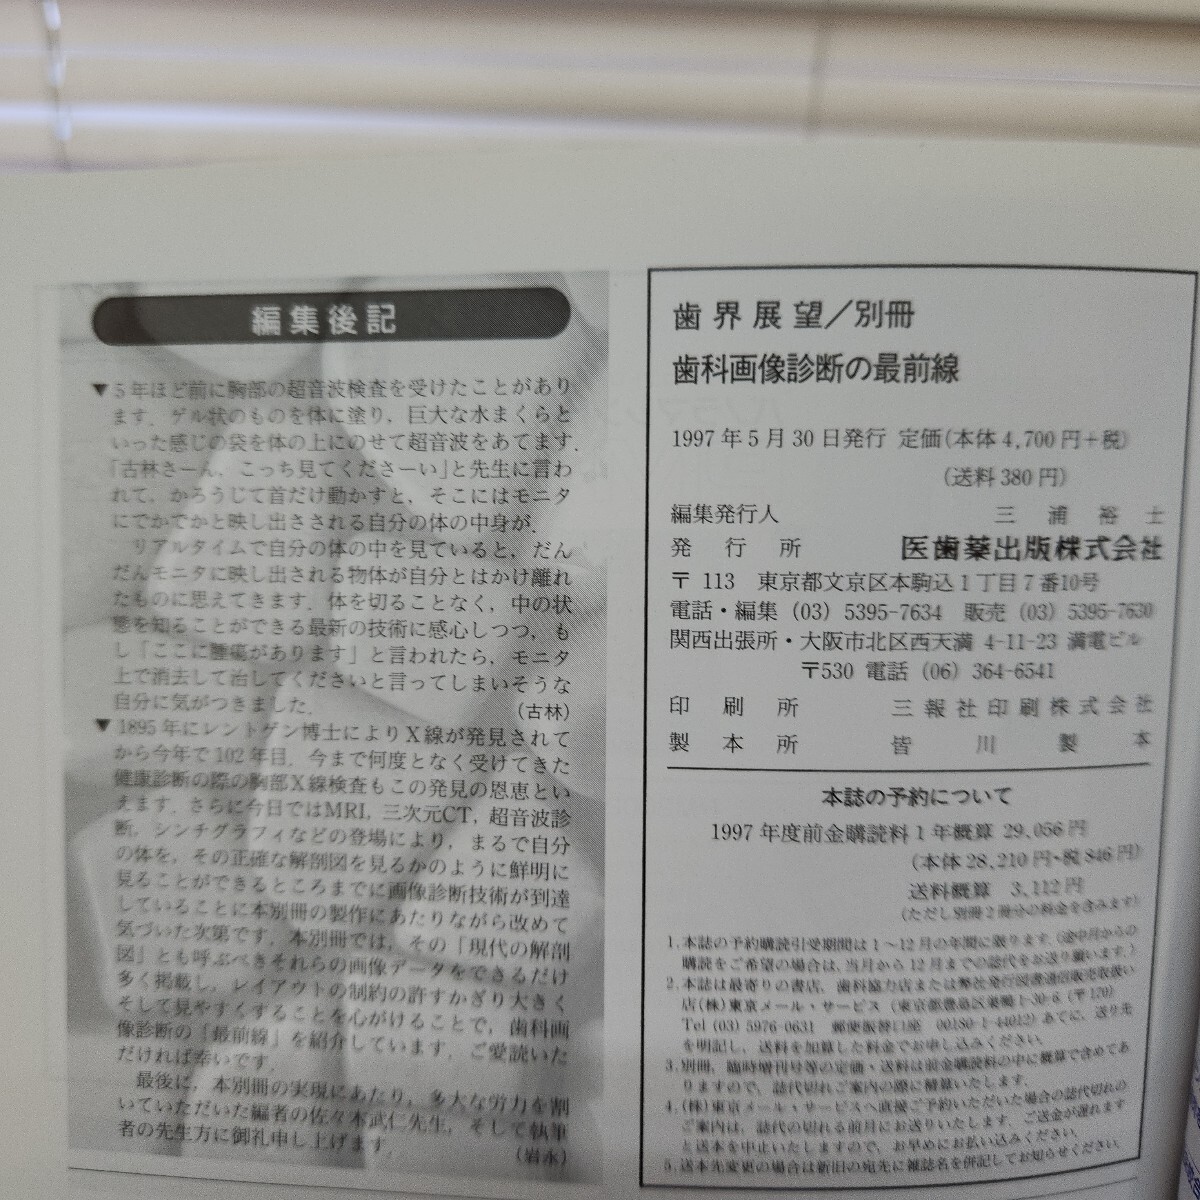 編集後記
▼5年ほど前に胸部の超音波検査を受けたことがあり
ます．ゲル状のものを体に塗り，巨大な水まくらと
いった感じの袋を体の上にのせて超音波をあてます．
「古林さーん，こっち見てくださーい」と先生に言わ
れて，かろうじて首だけ動かすと，そこにはモニタ
にでかでかと映し出さされる自分の体の中身が．
リアルタイムで自分の体の中を見ていると，だん
だんモニタに映し出される物体が自分とはかけ離れ
たものに思えてきます．体を切ることなく，中の状
態を知ることができる最新の技術に感心しつつ，も
し「ここに腫瘍があります」と言われたら，モニタ
上で消去して治してくださいと言ってしまいそうな
自分に気がつきました．
（古林）
▼1895年にレントゲン博士によりX線が発見されて
から今年で102年目．今まで何度となく受けてきた
健康診断の際の胸部X線検査もこの発見の恩恵とい
えます．さらに今日ではMRI，三次元CT，超音波診
断，シンチグラフィなどの登場により，まるで自分
の体を，その正確な解剖図を見るかのように鮮明に
見ることができるところまでに画像診断技術が到達
していることに本別冊の製作にあたりながら改めて
気づいた次第です．本別冊では，その「現代の解剖
図」とも呼ぶべきそれらの画像データをできるだけ
多く掲載し，レイアウトの制約の許すかぎり大きく
そして見やすくすることを心がけることで，歯科画
像診断の「最前線」を紹介しています．ご愛読いた
だければ幸いです．
最後に，本別冊の実現にあたり，多大な労力を割
いていただいた編者の佐々木武仁先生，そして執筆
者の先生方に御礼申し上げます．
（岩永）
歯界展望／別冊
歯科画像診断の最前線
1997年5月30日発行 定価(本体4,700円＋税)
(送料380円)
編集発行人 三浦裕士
発行所 医歯薬出版株式会社
〒113 東京都文京区本駒込1丁目7番10号
電話・編集 (03) 5395-7634 販売 (03) 5395-7630
関西出張所・大阪市北区西天満 4-11-23 満電ビル
〒530 電話 (06) 364-6541
印刷所 三報社印刷株式会社
製本所 皆川製本
本誌の予約について
1997年度前金購読料1年概算 29,056円
(本体28,210円・税846円)
送料概算 3,112円
(ただし別冊2冊分の料金を含みます)
1.本誌の予約購読引受期間は1～12月の年間に限ります．(途中月からの
購読をご希望の場合は，当月から12月までの誌代をお送り願います．)
2.本誌は最寄りの書店，歯科協力店または弊社発行図書通信販売取扱い
店(株)東京メール・サービス (東京都豊島区巣鴨1-30-6 (〒170)
Tel (03) 5976-0631 郵便振替口座 00180-1-44012) あてに，送り先
を明記し，送料を加算した料金でお申し込みください．
3.別冊，臨時増刊号等の定価・送料は前金購読料の中に概算で含めてあ
りますので，誌代切れご案内の際に精算いたします．
4.(株)東京メール・サービスへ直接ご予約いただいた場合の誌代切れの
ご案内は，誌代の切れる前月にお送りいたします．ご送金が遅れます
と送本を中止いたしますので，お早めにお払い込みください．
5.送本先変更の場合は新旧の宛先に雑誌名を併記してお知らせください．